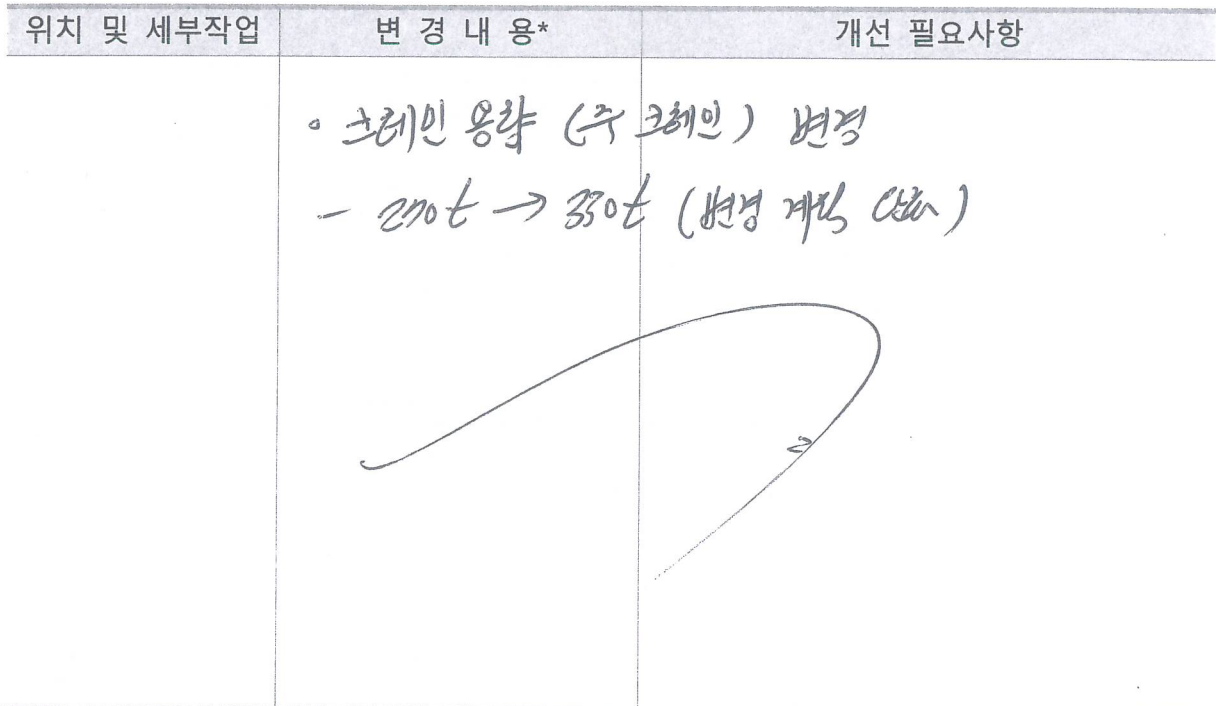 위치 및 세부작업 변 경 내 용* 개선 필요사항
◦ 크레인 용량 (주 크레인) 변경
- 270t → 350t (변경 계획